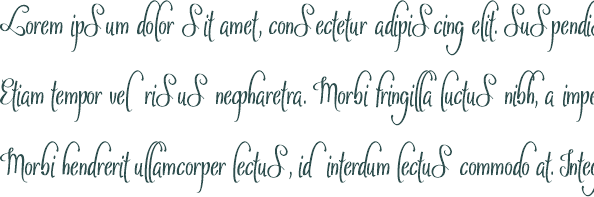 Lorem ipsum dolor sit amet, consectetur adipiscing elit. Suspendis
Etiam tempor vel risus neqpharetra. Morbi fringilla luctus nibh, a impe
Morbi hendrerit ullamcorper lectus, id interdum lectus commodo at. Integ